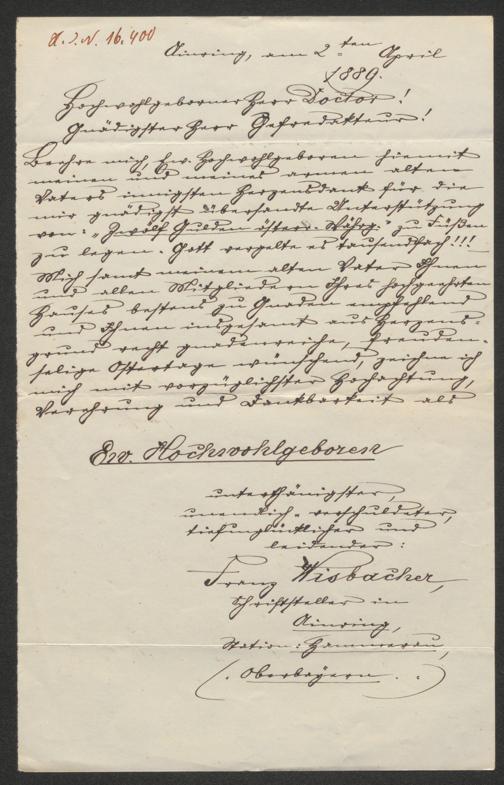 H. I. N. 16.400
Ainring, am 2ten April
1889.
Hochwohlgeborner Herr Doctor!
Gnädigster Herr Gefredakteur!
Beehre mich, Ew. Hochwohlgeboren hiemit
meinen und meines armen alten
Vaters innigsten Herzensdank für die
mir gnädigst übersandte Unterstützung
von: „Zwölf Gulden österr. Währg." zu Füßen
zu legen. Gott vergelte es tausendfach!!!
Mich samt meinem alten Vater Ihnen
und allen Mitgliedern Ihres hochgeehrten
Hauses bestens zu Gnaden empfehlend
und Ihnen insgesamt aus Herzens-
grund recht gnadenreiche, freuden-
selige Ostertage wünschend, zeichne ich
mich mit vorzüglichster Hochachtung,
Verehrung und Dankbarkeit als
Ew. Hochwohlgeboren
unterthänigster,
unendlich-verschuldeter,
tiefunglücklicher und
leidender:
Franz Wisbacher,
Schriftsteller in
Ainring,
Station: Hammerau,
(. Oberbayern. .)